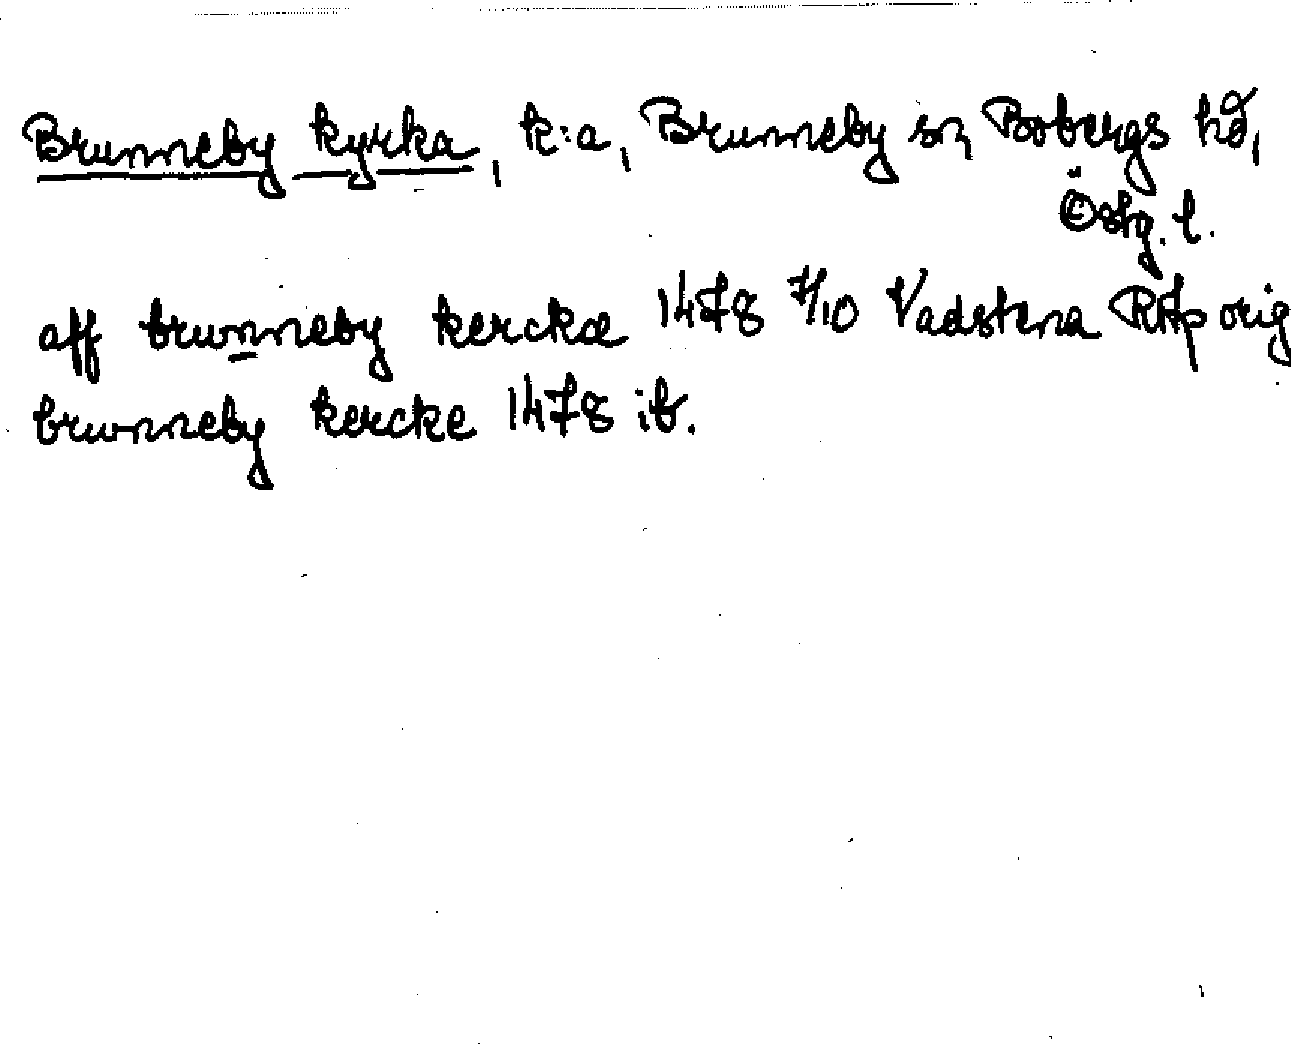 Brunneby kyrka, k:a, Brunneby sn Bobergs hd,
Östg. l.
aff brunneby kerckæ 1478 7/10 Vadstena RAp orig
brunneby kercke 1478 ib.